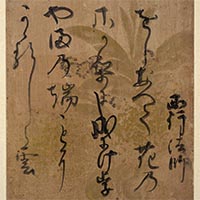 西行法師
をしなへて花の
さかりに成にけり
やまの端ことに
かゝるしら雲